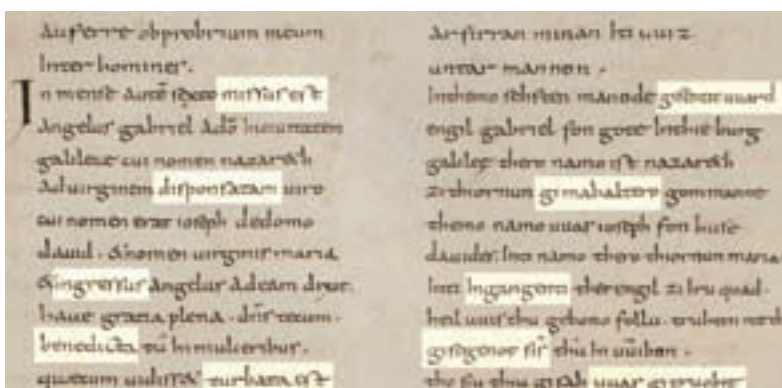 Auferre obprobrium meum
Inter homines.
In mense autē sexto missus est
Angelus gabriel adō Inciuitatem
galileae cui nomen nazareth
Aduirginem disponsatam uiro
cui nomen erat ioseph dedomo
dauid. & nomen uirginis maria
& ingressus angelus adeam dixit.
haue gratia plena. dn̄s tecum.
benedicta tū In mulieribus.
quaecum uidiss& turbata est
Arfirran minan uuiz
untar mannon.
Inthemo sehsten manude gisentit uuard
engil gabriel fon gote Inthie burg
galilee thero namo ist nazareth
zi thiornun gimahaltero gommanne
themo namo uuas ioseph fon huse
dauides. Inti namo thero thiornun maria
Inti Ingangenti ther engil zi Iru quad.
heil uuis thu gebono follu. truhtin mit
gisegenot sis thu In uuibon.
tho siu thu gisah uuas gitruobit